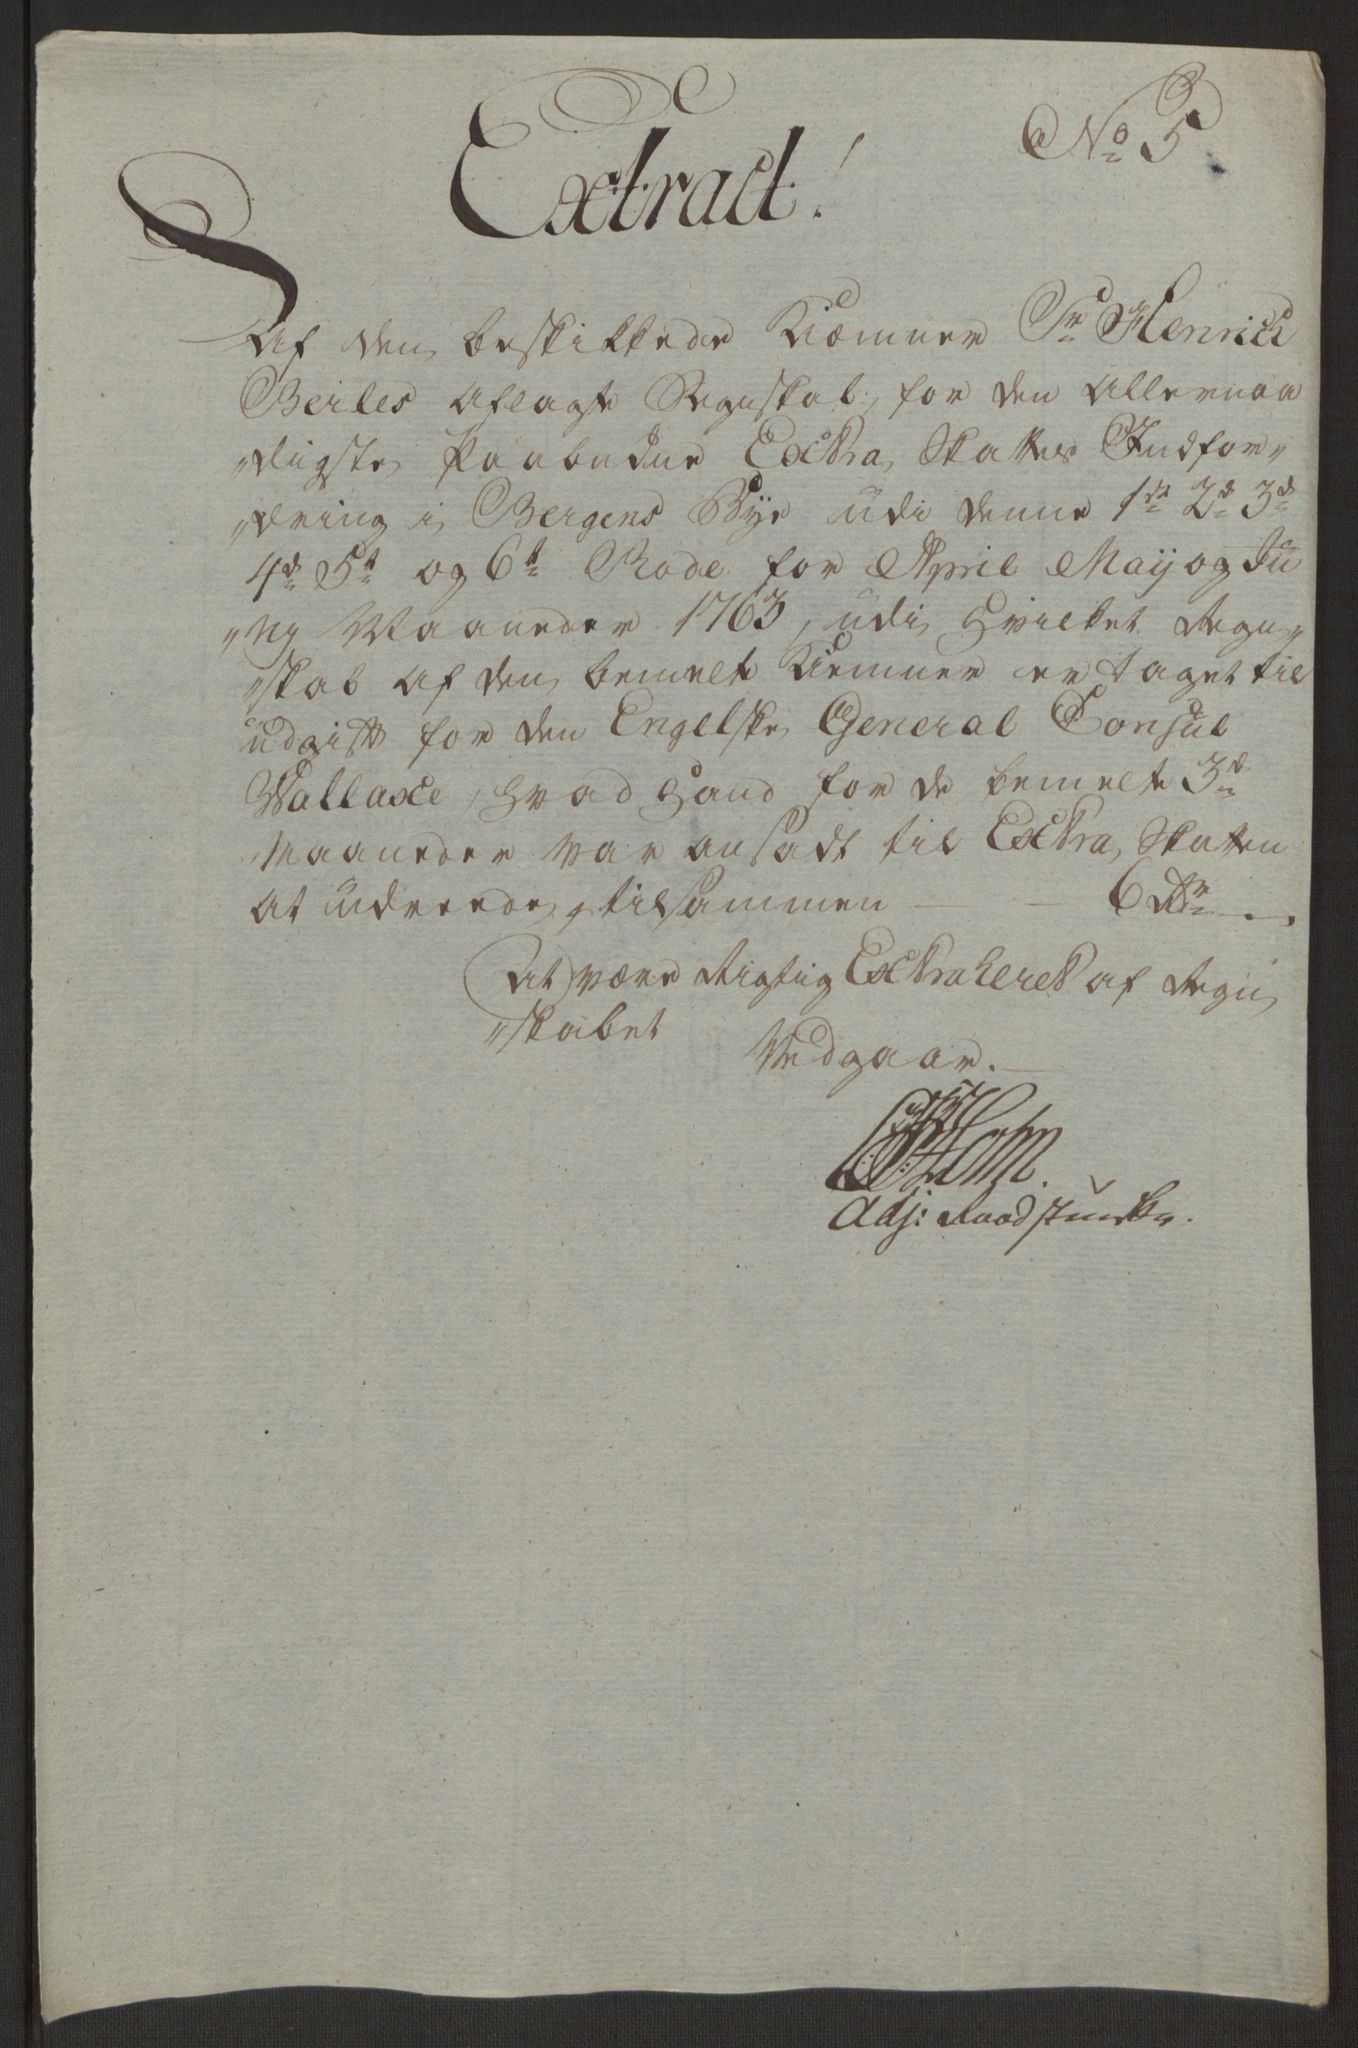 No 5
Extract!
Af den beskikkede Kiemner Sr Henrich
Berles aflagte Regnskab, for den Allernaa
"digste paabudne Extra Skattes Indfor"
"dring i Bergens Bye udi denne 1ste 2d 3d
4d 5t og 6t Rode for April Maij og Ju
"ny Maaneder 1763, udi hvilket Regn"
"skab af den bemelte Kiemner er taget til
udgift for den Engelske General Consul
Wallace, hvad hand for de bemelte 3d
Maaneder var ansadt til Extra Skatten
at udreede, tilsammen — — 6 Rdr — .
At være Rigtig Extraheret af Regn
"skabet
Vedgaar.
Holm.
Adj: Raadstueskr.